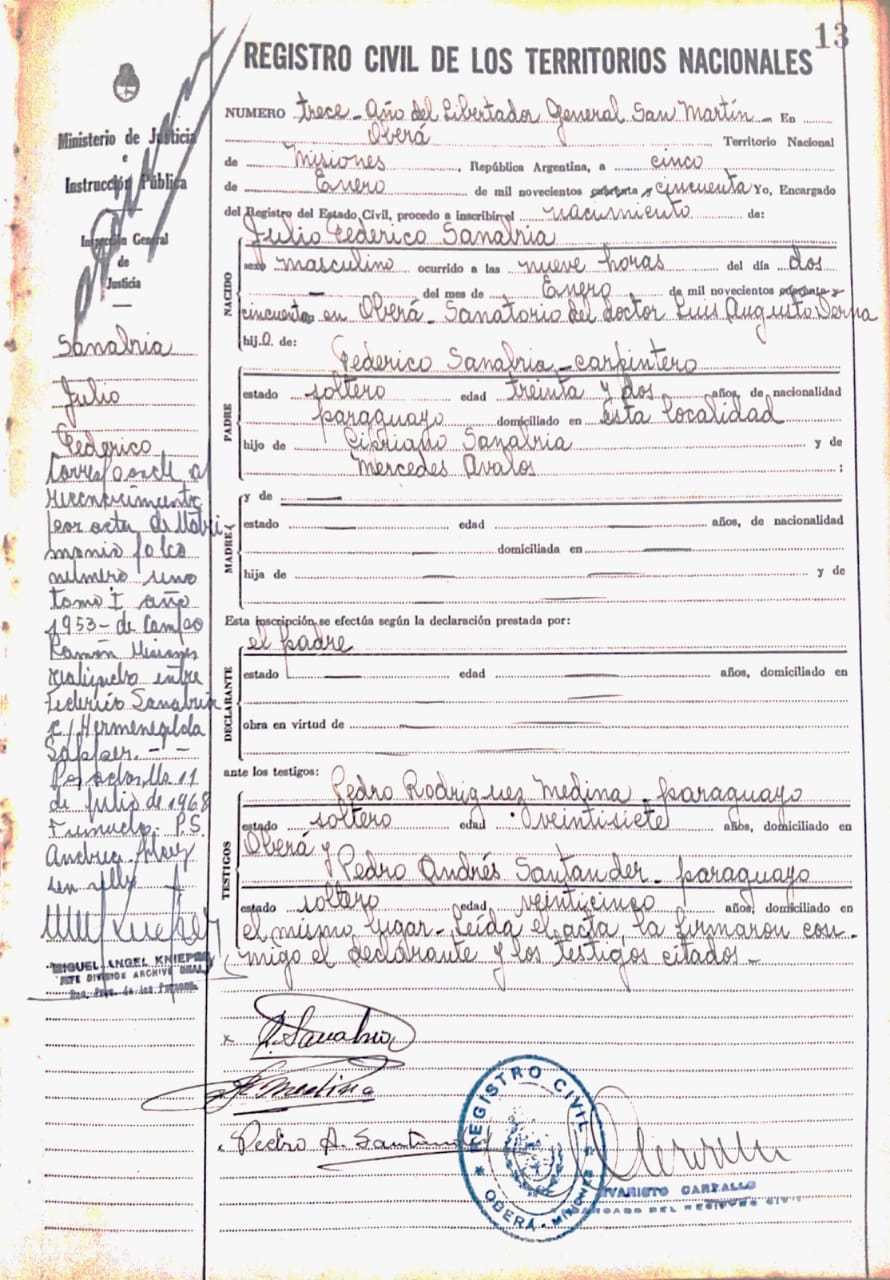 13
REGISTRO CIVIL DE LOS TERRITORIOS NACIONALES
Ministerio de Justicia
e
Instrucción Pública
Inspección General
de
Justicia
Sanabria
Julio
Federico
Corresponde al
reconocimiento
por acta de Matri-
monio folio
número uno
tomo I año
1953 - de Campo
Ramón Misiones
realizado entre
Federico Sanabria
c/ Hermenegilda
Posadas, 11
de julio de 1968
MIGUEL ANGEL KNIEP
JEFE DIVISION ARCHIVO GRAL
NUMERO trece - Año del Libertador General San Martín - En
Oberá Territorio Nacional
de Misiones, República Argentina, a cinco
de Enero de mil novecientos cuarenta y cincuenta Yo, Encargado
del Registro del Estado Civil, procedo a inscribir el nacimiento de:
NACIDO
Julio Federico Sanabria
sexo masculino ocurrido a las nueve horas del día dos
— del mes de Enero de mil novecientos cuarenta y
cincuenta, en Oberá - Sanatorio del doctor Luis Augusto Derna
hij.o. de:
PADRE
Federico Sanabria - carpintero
estado soltero edad treinta y dos años, de nacionalidad
paraguayo domiciliado en esta localidad
hijo de Cipriano Sanabria y de
Mercedes Avalos ;
MADRE
y de —
estado — edad — años, de nacionalidad
— domiciliada en —
hija de — — y de
— —
Esta inscripción se efectúa según la declaración prestada por:
DECLARANTE
el padre
estado — edad — años, domiciliado en
— —
obra en virtud de — —
— —
ante los testigos:
TESTIGOS
Pedro Rodriguez Medina - paraguayo
estado soltero edad veintisiete años, domiciliado en
Oberá y
Pedro Andrés Santander - paraguayo
estado soltero edad veinticinco años, domiciliado en
el mismo lugar - Leída el acta, la firmaron con-
migo el declarante y los testigos citados -
x F. Sanabria
Medina
Pedro A. Santander
REGISTRO CIVIL
OBERÁ - MISIONES
EVARISTO CARBALLO
ENCARGADO DEL REGISTRO CIVIL